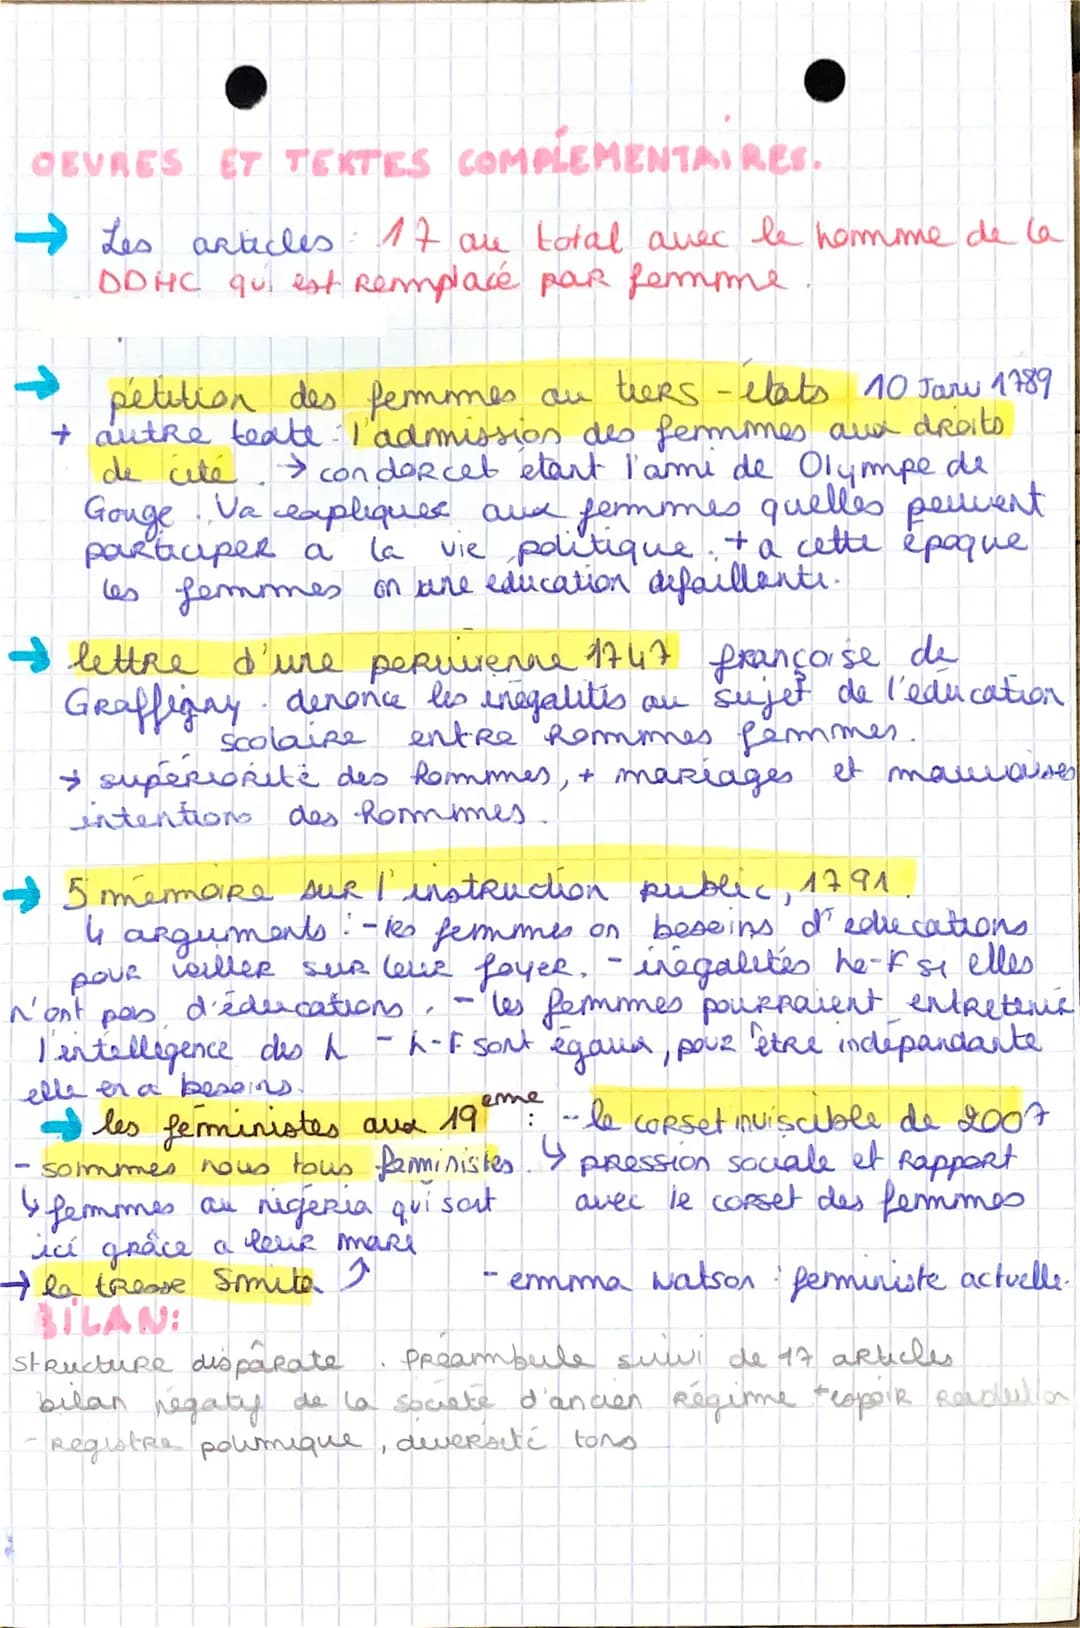 OEVRES ET TEXTES COMPLÉMENTAIRES.
→ Les articles : 17 au total avec le homme de la
DDHC qui est remplacé par femme.
→ pétition des femmes au tiers-états 10 Janv 1789
+ autre texte : l'admission des femmes aux droits
de cité. → condorcet étant l'ami de Olympe de
Gouge. Va expliquer aux femmes quelles peuvent
participer a la vie politique. + a cette époque
les femmes on une éducation défaillante.
→ lettre d'une péruvienne 1747 françoise de
Graffigny. denonce les inégalités au sujet de l'éducation
scolaire entre hommes femmes.
→ supériorité des hommes, + mariages et mauvaises
intentions des hommes.
→ 5 mémoire sur l'instruction public, 1791.
4 arguments : - les femmes on besoins d'educations
pour veiller sur leur foyer. - inégalités he-F si elles
n'ont pas d'éducations. - les femmes pourraient entretenir
l'intelligence des h - h-F sont égaux, pour être indépendante
elle en a besoins.
→ les féministes aux 19eme : - le corset inviscible de 2007
- sommes nous tous féministes. ↳ pression sociale et rapport
↳ femmes au nigéria qui sont avec le corset des femmes
ici grâce a leur mari
→ la tresse Smita ↗ - emma watson : féministe actuelle.
BILAN:
structure disparate. Préambule suivi de 17 articles
bilan négatif de la société d'ancien Régime + espoir
- registre polémique, diversité tons